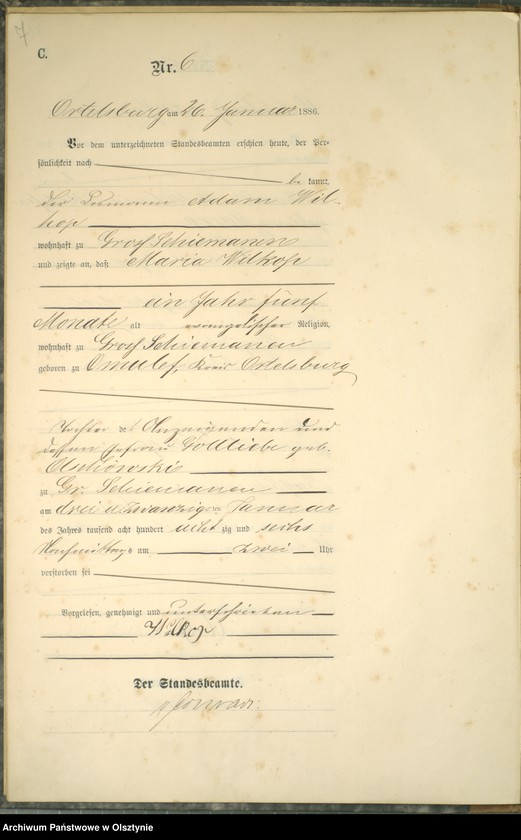 7
C.
Nr. 6
Ortelsburg am 26. Januar 1886.
Vor dem unterzeichneten Standesbeamten erschien heute, der Per-
sönlichkeit nach
be kannt,
der Adam Wil-
kop
wohnhaft zu Gross Schiemanen
und zeigte an, daß Maria Wilkop
ein Jahr fünf
Monate alt evangelischer Religion,
wohnhaft zu Gross Schiemanen
geboren zu Omulef, Kreis Ortelsburg
Tochter des Anzeigenden und
dessen Ehefrau Gottliebe geb.
zu Gr. Schiemanen
am drei u zwanzigsten Januar
des Jahres tausend acht hundert acht zig und sechs
Nachmittags um zwei Uhr
verstorben sei
Vorgelesen, genehmigt und unterschrieben
Wilkop
Der Standesbeamte.
Archiwum Państwowe w Olsztynie